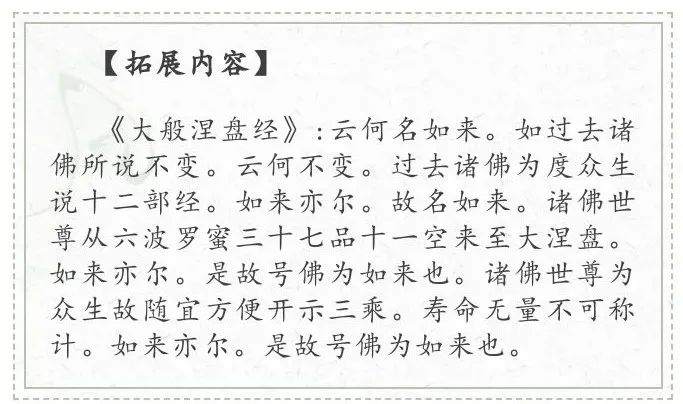 【拓展内容】
《大般涅盘经》:云何名如来。如过去诸
佛所说不变。云何不变。过去诸佛为度众生
说十二部经。如来亦尔。故名如来。诸佛世
尊从六波罗蜜三十七品十一空来至大涅盘。
如来亦尔。是故号佛为如来也。诸佛世尊为
众生故随宜方便开示三乘。寿命无量不可称
计。如来亦尔。是故号佛为如来也。